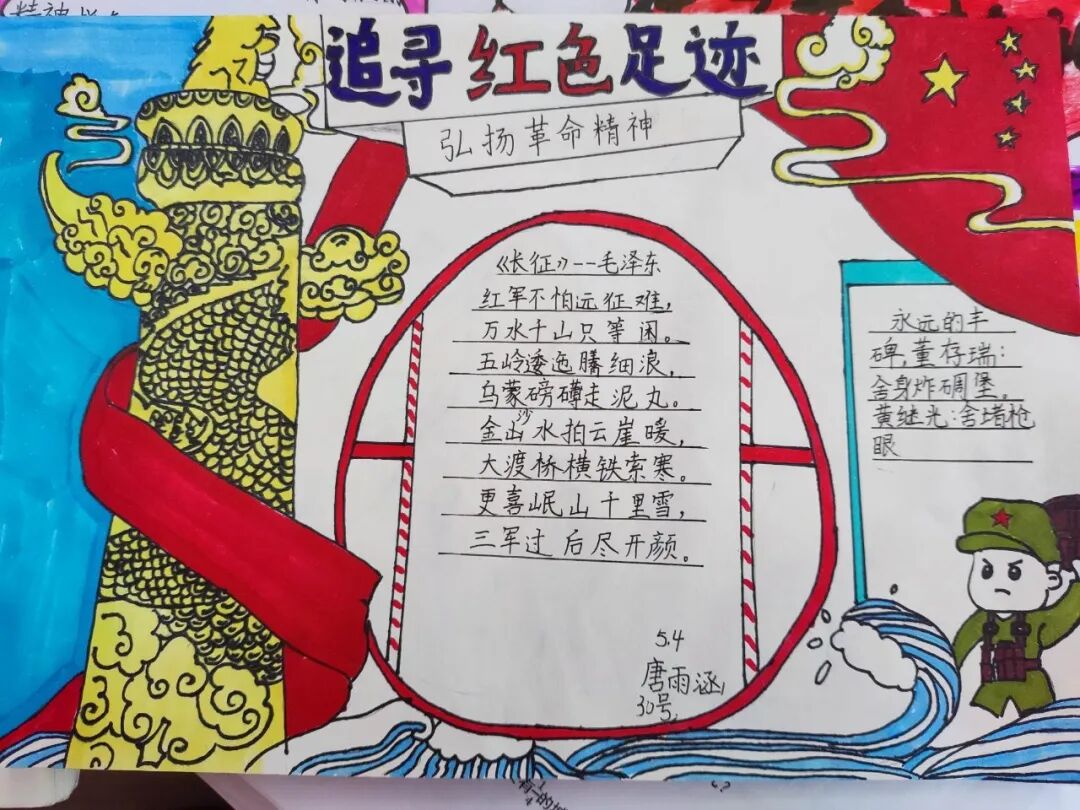 精神
追寻红色足迹
弘扬革命精神
《长征》--毛泽东
红军不怕远征难，
万水千山只等闲。
五岭逶迤腾细浪，
乌蒙磅礴走泥丸。
金沙水拍云崖暖，
大渡桥横铁索寒。
更喜岷山千里雪，
三军过后尽开颜。
5.4
唐雨涵
30号
永远的丰
碑，董存瑞：
舍身炸碉堡。
黄继光：舍堵枪
眼